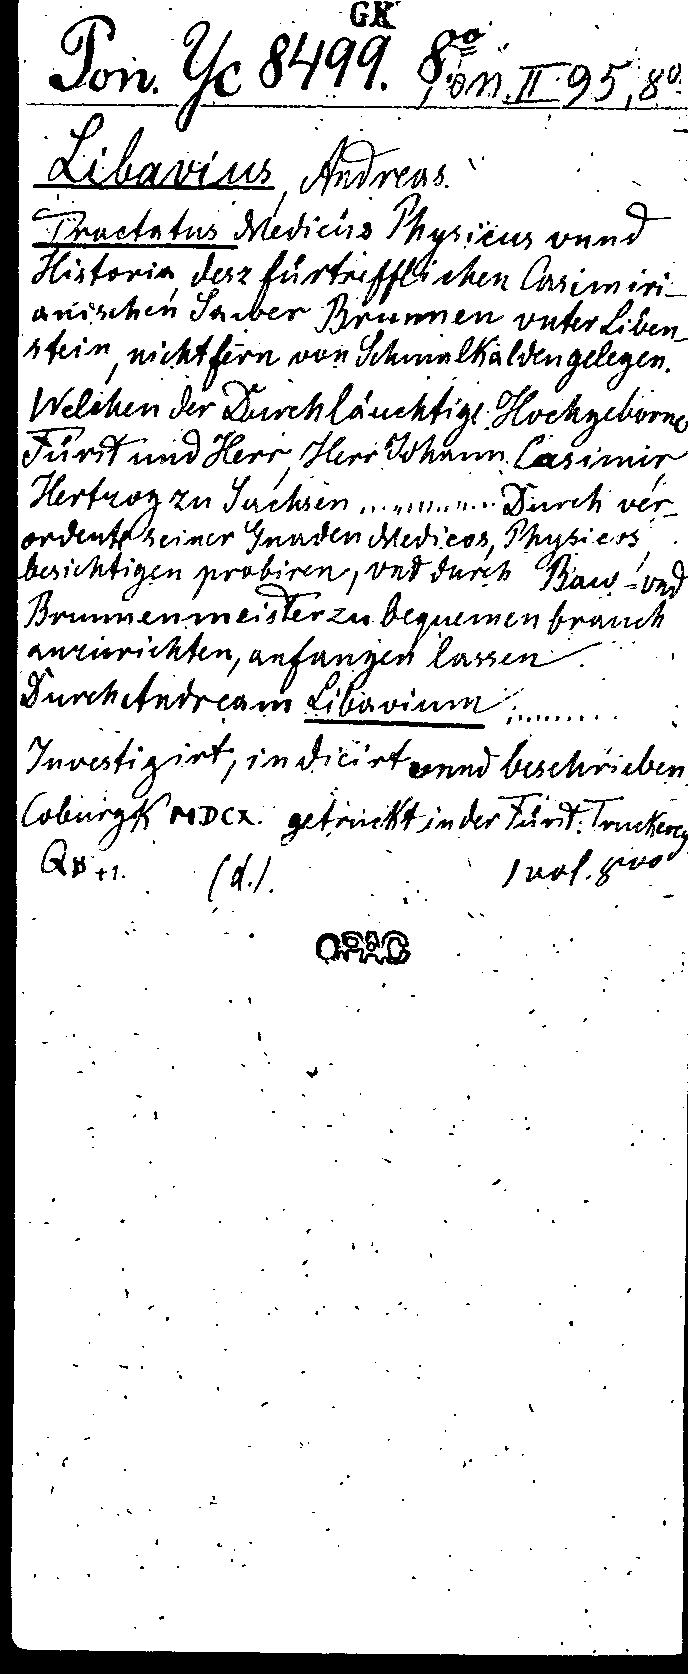 GK
Pon. Yc 8499. 8vo
Pon. II 95, 8o.
Libavius, Andreas.
Tractatus Medicus Physicus vnnd
Historia desz fürtrefflichen Casimiri-
anischen Sawer Brunnen vnter Liben-
stein, nicht fern von Schmalkalden gelegen.
Welchen der Durchläuchtige Hochgeborne
Fürst und Herr, Herr Johann Casimir,
Hertzog zu Sachsen ........... Durch ver-
ordente seiner Gnaden Medicos, Physicos,
besichtigen probiren, vnd durch Baw- vnd
Brunnenmeister zu bequemen brauch
anzurichten, anfangen lassen.
Durch Andream Libavium .........
Investigirt, indicirt vnnd beschrieben
Coburgk MDCX. getruckt in der Fürst. Truckerey
(d.). 1 vol. 8vo
OPAC